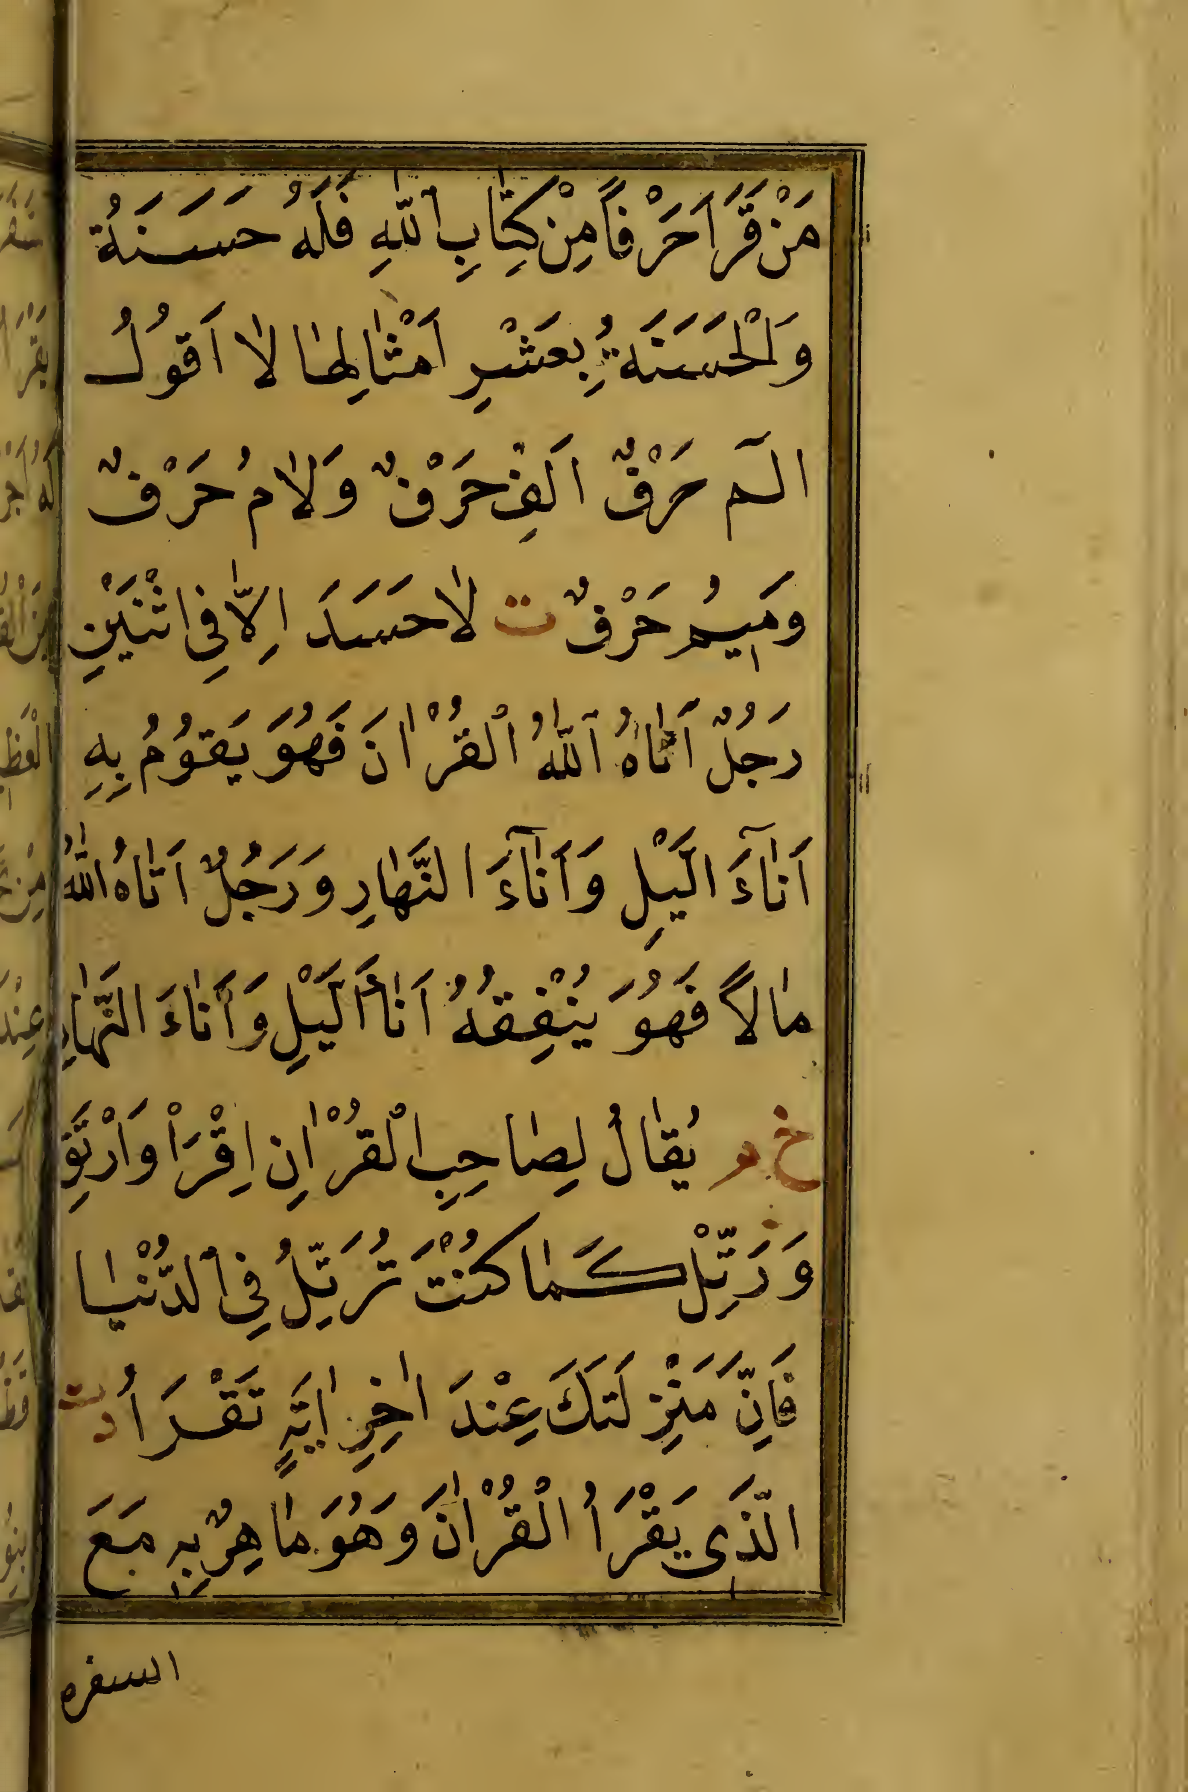 مَنْ قَرَاَ حَرْفًا مِنْ كِتَابِ اللّٰهِ فَلَهُ حَسَنَةٌ
وَالْحَسَنَةُ بِعَشْرِ اَمْثَالِهَا لَا اَقُولُ
الٓمٓ حَرْفٌ اَلِفْ حَرْفٌ وَلَامُ حَرْفٌ
وَمِيمُ حَرْفٌ ت لَا حَسَدَ اِلَّا فِى اثْنَيْنِ
رَجُلٌ اٰتَاهُ اللّٰهُ الْقُرْاٰنَ فَهُوَ يَقُومُ بِهِ
اٰنَآءَ الَّيْلِ وَاٰنَآءَ النَّهَارِ وَرَجُلٌ اَتَاهُ اللّٰهُ
مَالًا فَهُوَ يُنْفِقُهُ اٰنَاءَ الَّيْلِ وَاَنَاءَ النَّهَارِ
خ م يُقَالُ لِصَاحِبِ الْقُرْاٰنِ اِقْرَأْ وَارْتَقِ
وَرَتِّلْ كَمَا كُنْتَ تُرَتِّلُ فِى الدُّنْيَا
فَاِنَّ مَنْزِلَتَكَ عِنْدَ اٰخِرِ اٰيَةٍ تَقْرَأُ د ت
الَّذِى يَقْرَأُ الْقُرْاٰنَ وَهُوَ مَاهِرٌ بِهِ مَعَ
السفره